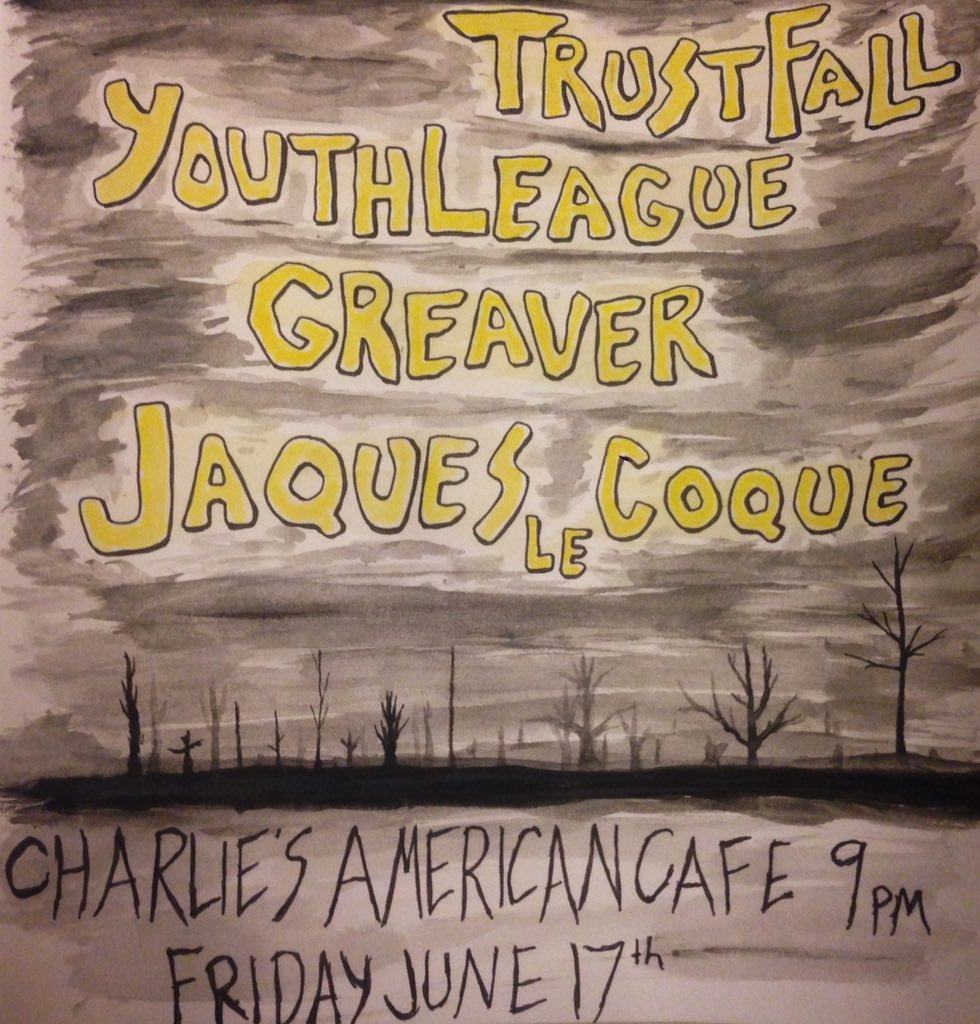 TRUSTFALL
YOUTHLEAGUE
GREAVER
JAQUES LE COQUE
CHARLIE'S AMERICAN CAFE 9PM
FRIDAY JUNE 17th